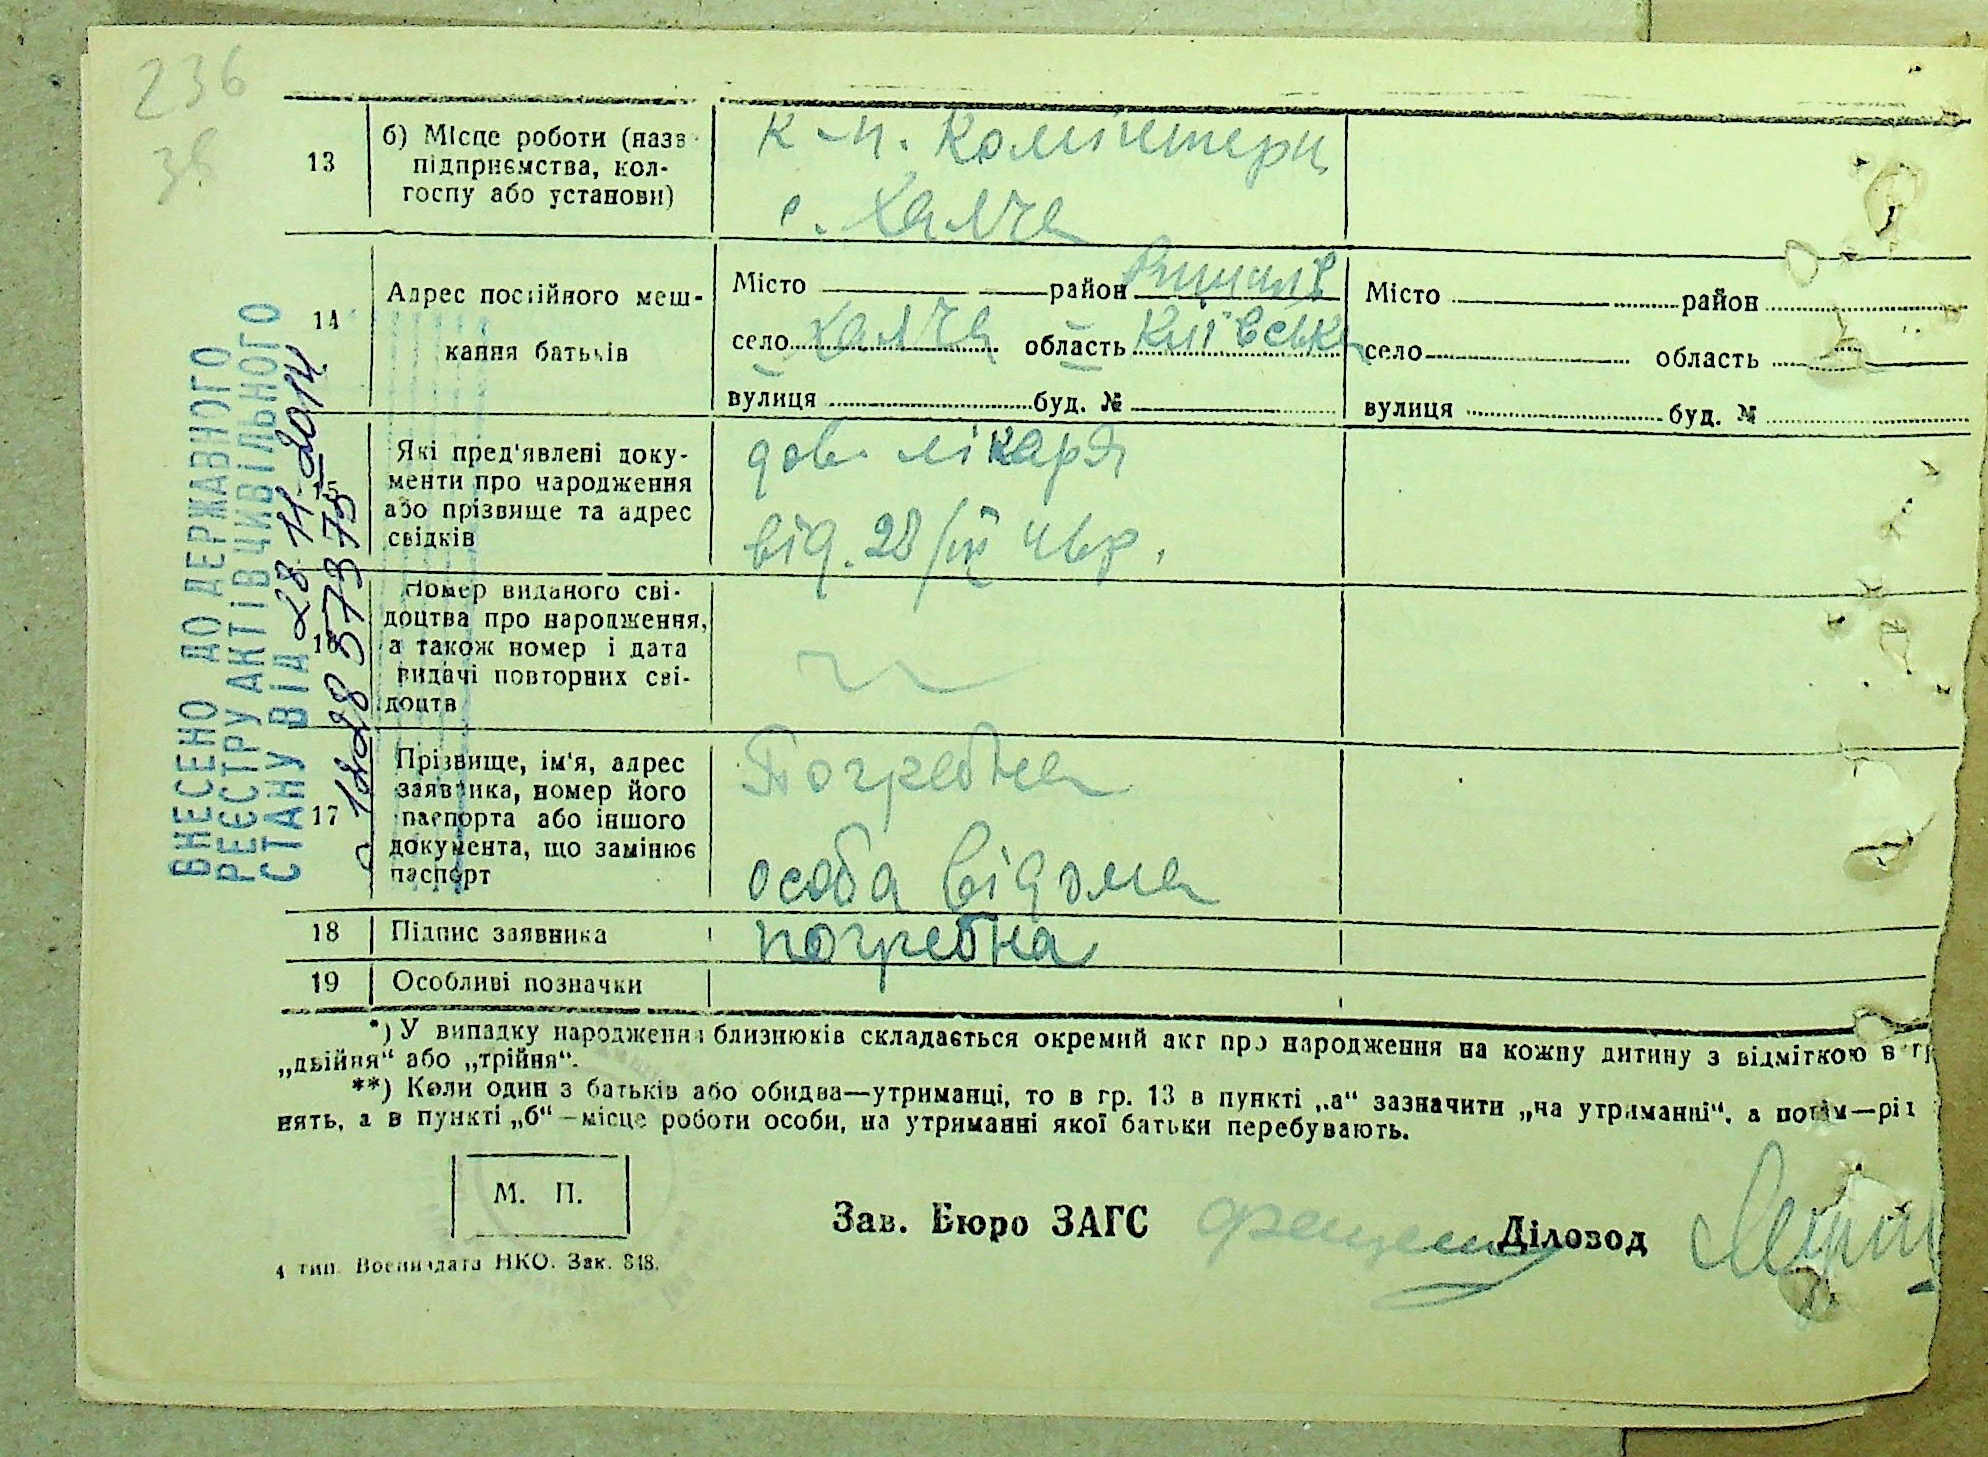 236
38
13
б) Місце роботи (назв
підприємства, кол-
госпу або установи)
к-п. Комінтерн
с. Халча
14
Адрес постійного меш-
кання батьків
Місто район
село Халча область Київська
вулиця буд. №
Місто район
село область
вулиця буд. №
15
Які пред'явлені доку-
менти про народження
або прізвище та адрес
свідків
дов. лікаря
від. 28/
16
Номер виданого сві-
доцтва про народження,
а також номер і дата
видачі повторних сві-
доцтв
17
Прізвище, ім'я, адрес
заявника, номер його
паспорта або іншого
документа, що замінює
паспорт
Погребна
особа відома
18
Підпис заявника
погребна
19
Особливі позначки
*) У випадку народження близнюків складається окремий акт про народження на кожну дитину з відміткою в гр
„двійня“ або „трійня“.
**) Коли один з батьків або обидва—утриманці, то в гр. 13 в пункті „а“ зазначити „на утриманні“, а потім—рід
нять, а в пункті „б“—місце роботи особи, на утриманні якої батьки перебувають.
М. П.
Зав. Бюро ЗАГС
Діловод
4 тип. Воениздата НКО. Зак. 848.
ВНЕСЕНО ДО ДЕРЖАВНОГО
РЕЄСТРУ АКТІВ ЦИВІЛЬНОГО
СТАНУ ВІД 28 11 2014